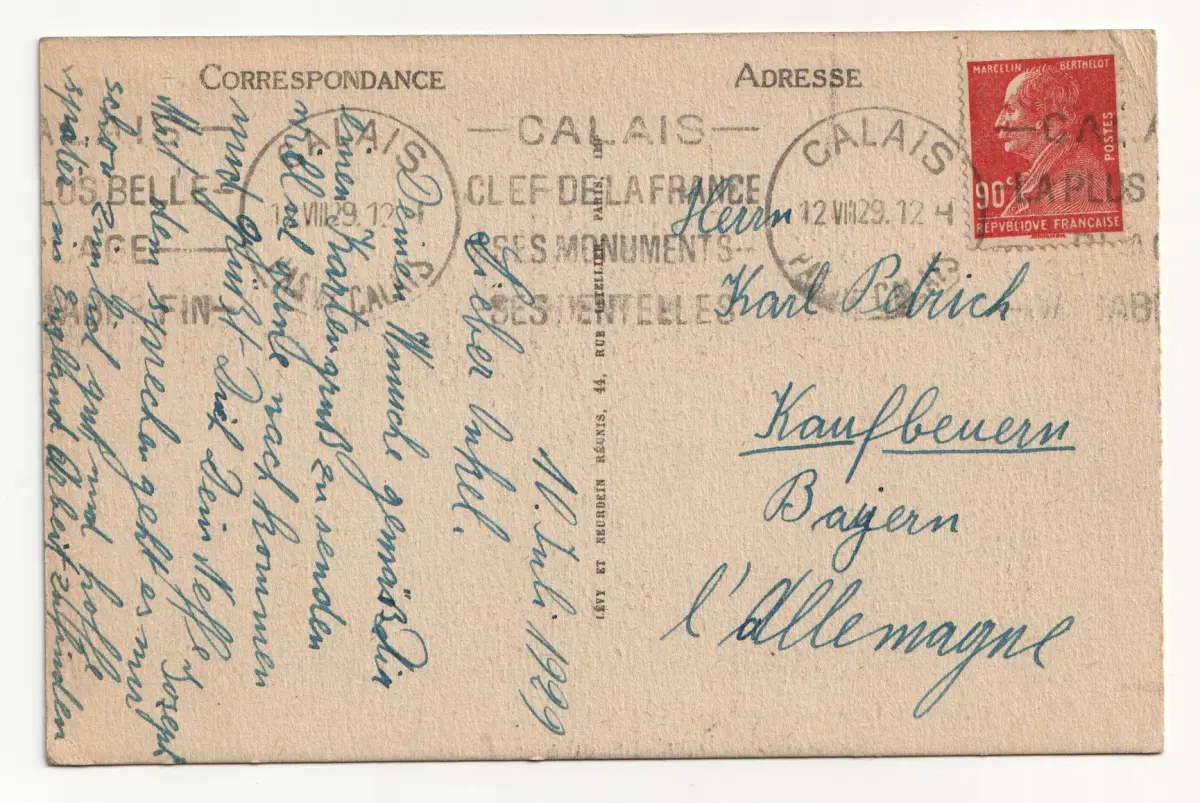 CORRESPONDANCE
ADRESSE
MARCELIN BERTHELOT
POSTES
90c
REPVBLIQVE FRANÇAISE
CALAIS
12 VIII 29. 12 H
PAS DE CALAIS
— CALAIS —
CLEF DE LA FRANCE
SES MONUMENTS
SES DENTELLES
CALAIS
12 VIII 29. 12 H
— CALA
LA PLUS
LUS BELLE
LÉVY ET NEURDEIN RÉUNIS, 44, RUE LETELLIER, PARIS, IMP.
Herrn
Karl Petrich
Kaufbeuern
Bayern
l'Allemagne
10. Juli 1929
Lieber Onkel.
Deinem Wunsche gemäß Dir
einen Kartengruß zu senden
will ich gerne nach kommen
und grüßt Dich Dein Neffe Joseph
Mit dem sprechen geht es mir
schon zimlich gut und hoffe
später in England Arbeit zu finden